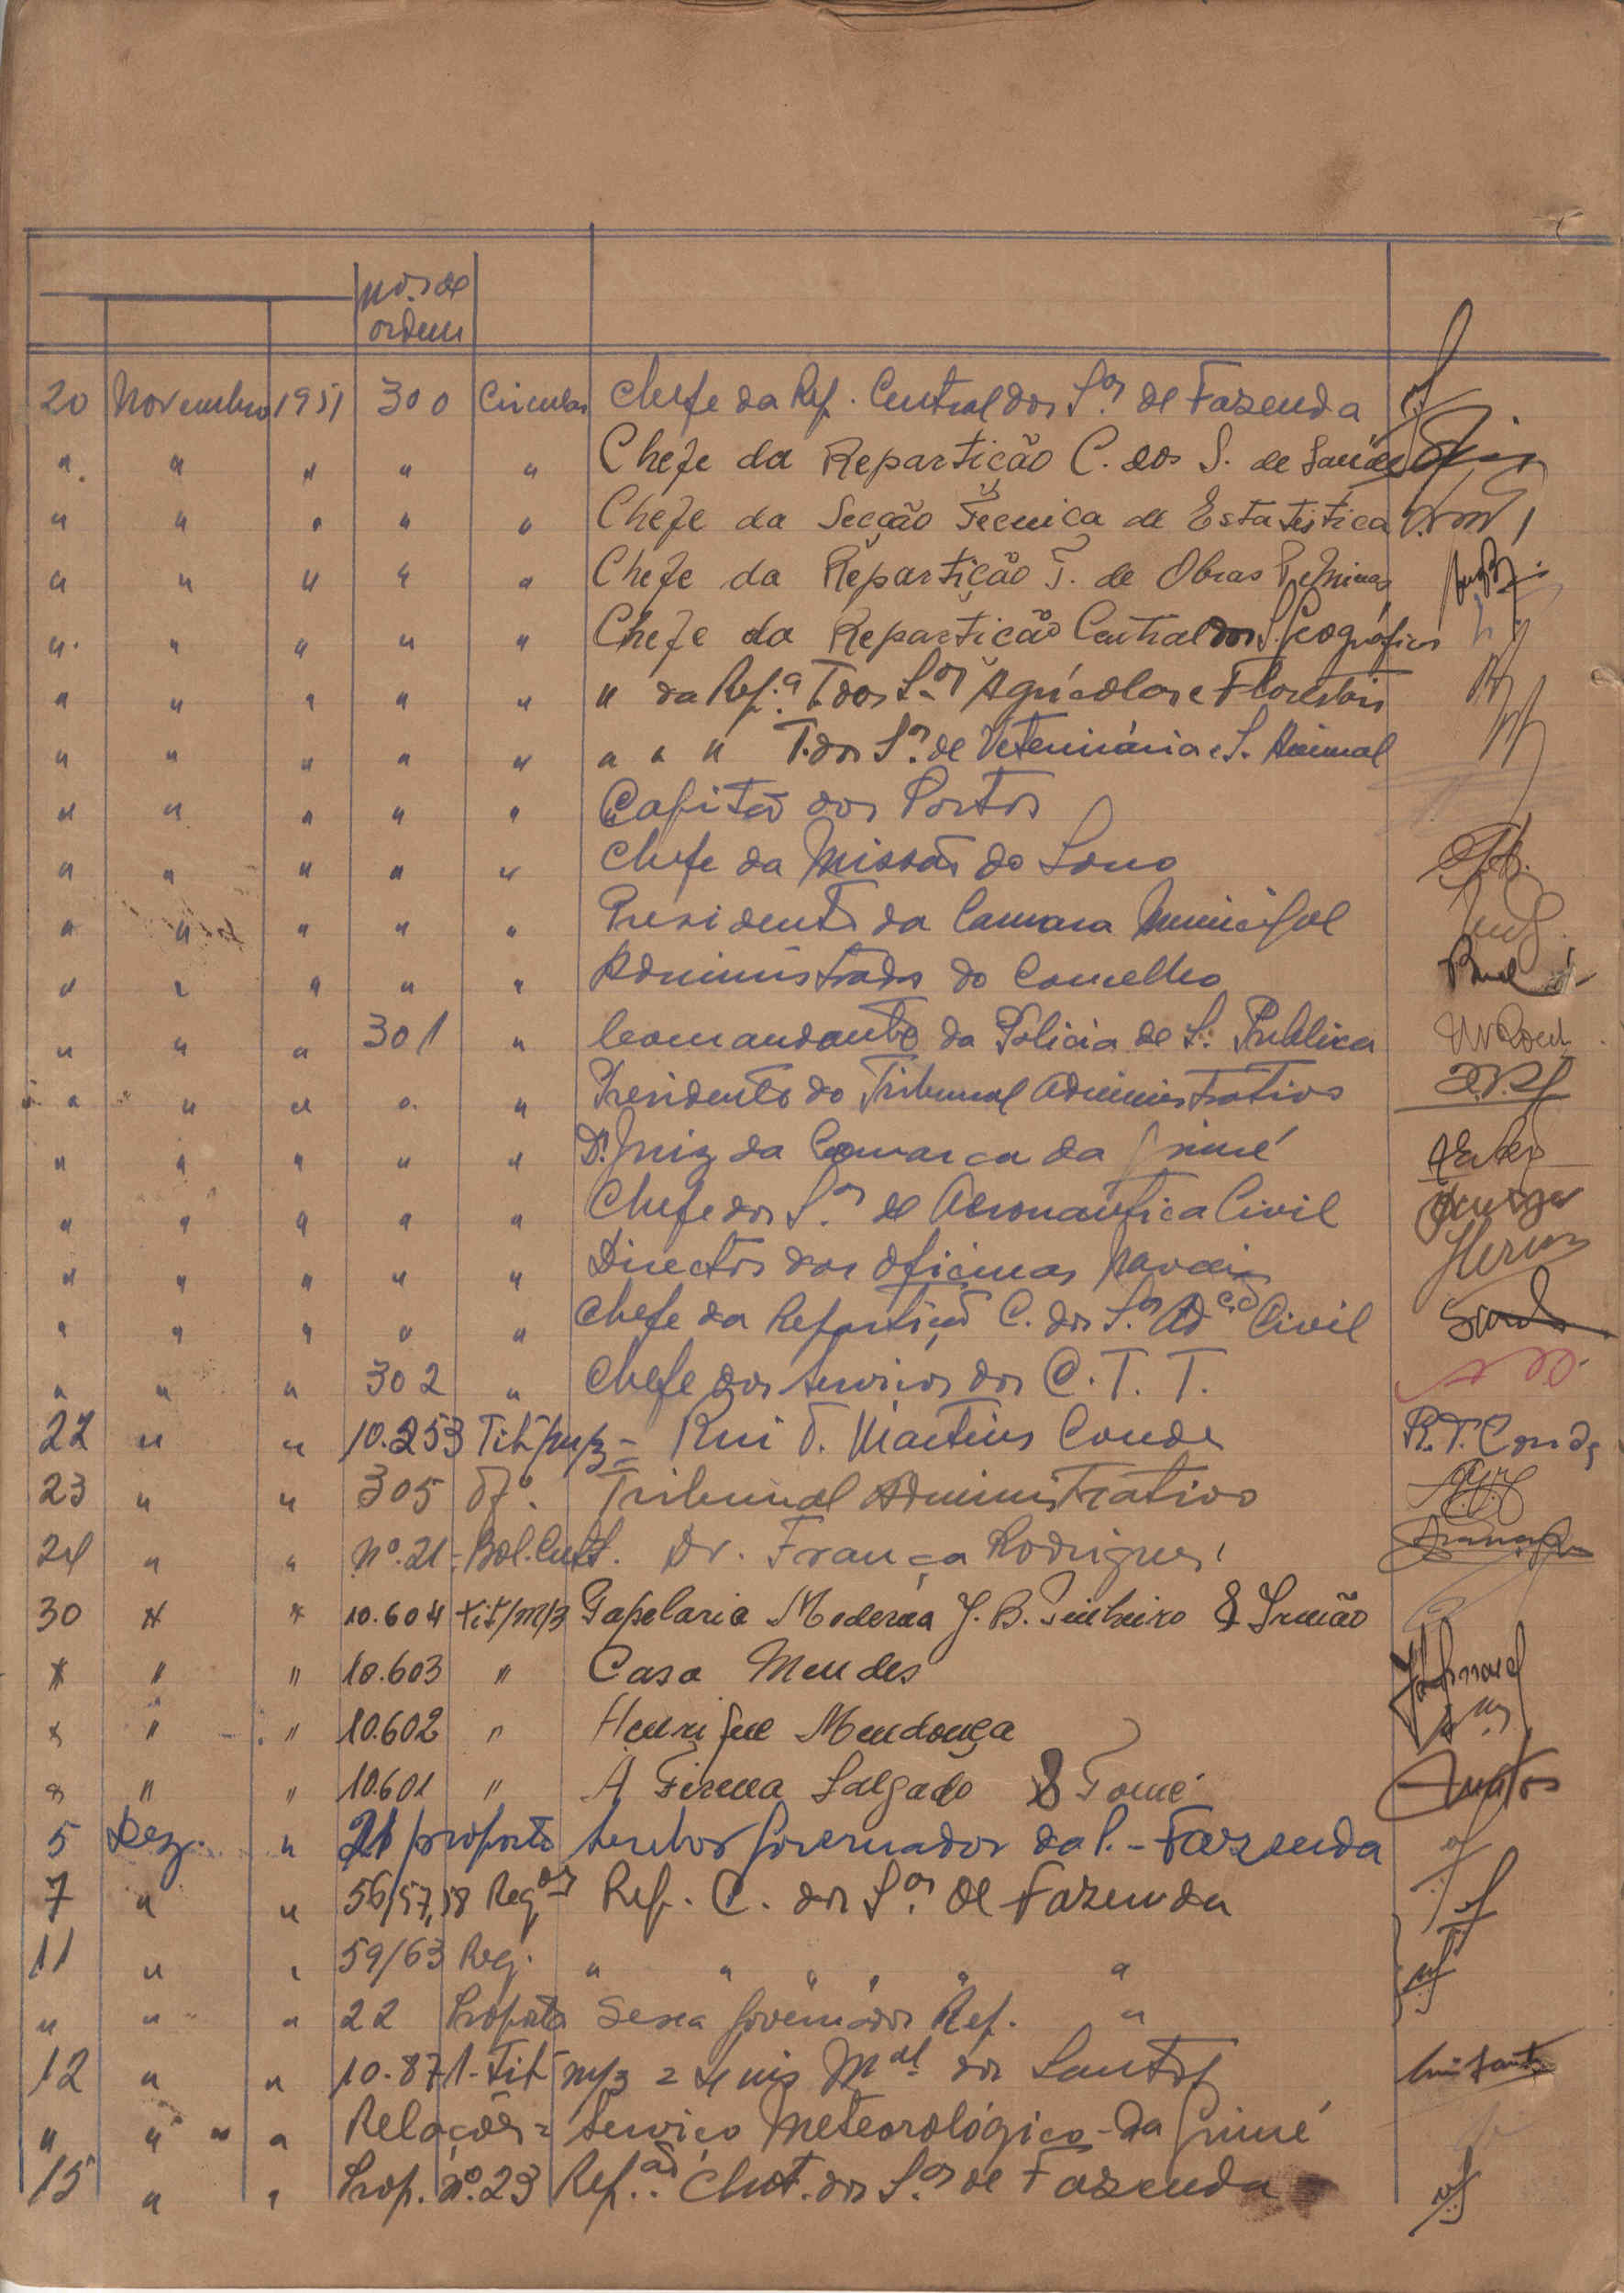 Nos. de
ordem
20 Novembro 1951 300 Circular Chefe da Rep. Central dos S.os de Fazenda
" " " " " Chefe da Repartição C. dos S. de Saúde
" " " " " Chefe da Secção Técnica de Estatística
" " " " " Chefe da Repartição T. de Obras P. e Minas
" " " " " Chefe da Repartição Central dos S. Geográficos
" " " " " " da Rep.a T. dos S.os Agrícolas e Florestais
" " " " " " " " T. dos S.os de Veterinária e S. Animal
" " " " " Capitão dos Portos
" " " " " Chefe da Missão do Sono
" " " " " Presidente da Camara Municipal
" " " " " Administrador do Concelho
" " " 301 " Comandante da Policia de S. Publica
" " " " " Presidente do Tribunal Administrativo
" " " " " Dr. Juiz da Comarca da Guiné
" " " " " Chefe dos S.os de Aeronautica Civil
" " " " " Director das Oficinas Navais
" " " " " Chefe da Repartição C. dos S.os Ad.ção Civil
" " " 302 " Chefe dos Serviços dos C. T. T.
22 " " 10.253 Tit/m/3 = Rui T. Martins Conde R. T. Conde
23 " " 305 Of.o Tribunal Administrativo
24 " " No. 21 - Bol. Cult. Dr. França Rodrigues
30 " " 10.604 tit/m/3 Papelaria Moderna J. B. Pinheiro & Irmão
" " " 10.603 " Casa Mendes
" " " 10.602 " Henrique Mendonça
" " " 10.601 " A Firma Salgado & Tomé
5 Dez. " 21 proposta Senhor Governador da P. - Fazenda
7 " " 56/57,58 Req.os Rep. C. dos S.os de Fazenda
11 " " 59/63 Req. " " " " " "
" " " 22 Proposta Sexa Governador Rep. "
12 " " 10.871 - Tit m/3 = Luis M.al dos Santos
" " " Relações = Serviço Meteorológico - da Guiné
15 " " Prop. no. 23 Rep.ção Cent. dos S.os de Fazenda